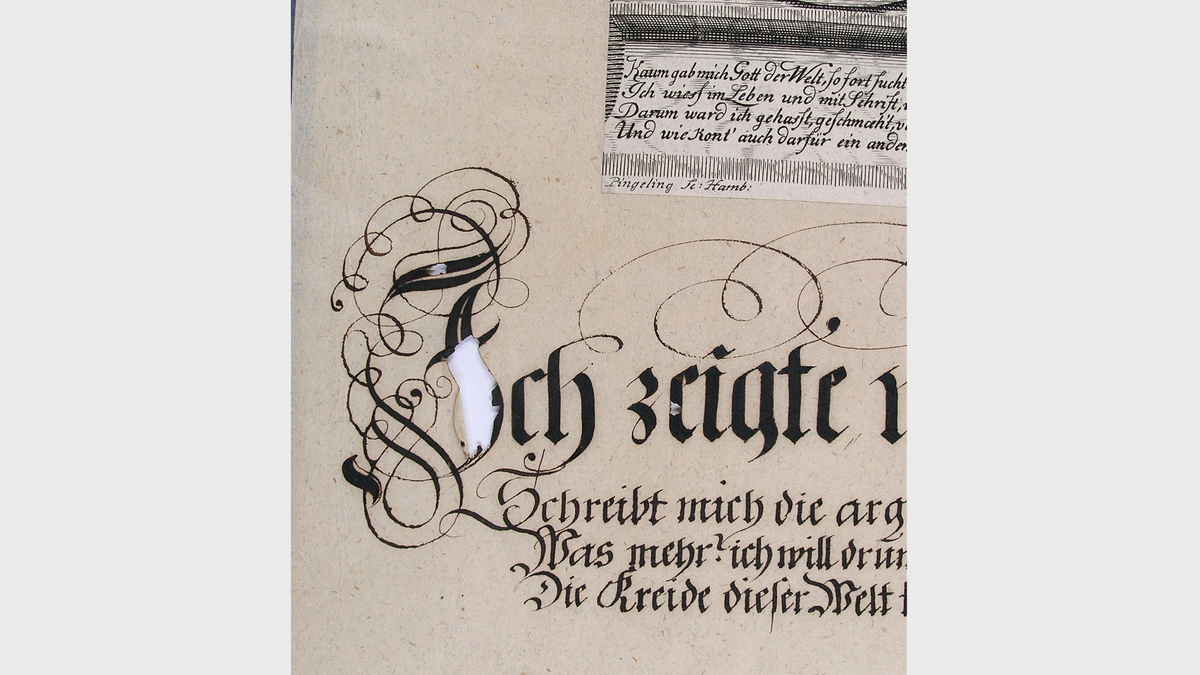 Kaum gab mich Gott der Welt, so fort sucht
Ich wiess im Leben und mit Schrift,
Darum ward ich gehasst, geschmæht,
Und wie Kont' auch darfür ein ander
Pingeling Sc: Hamb:
Ich zeigte
Schreibt mich die arg
Was mehr? ich will drum
Die Kreide dieser Welt